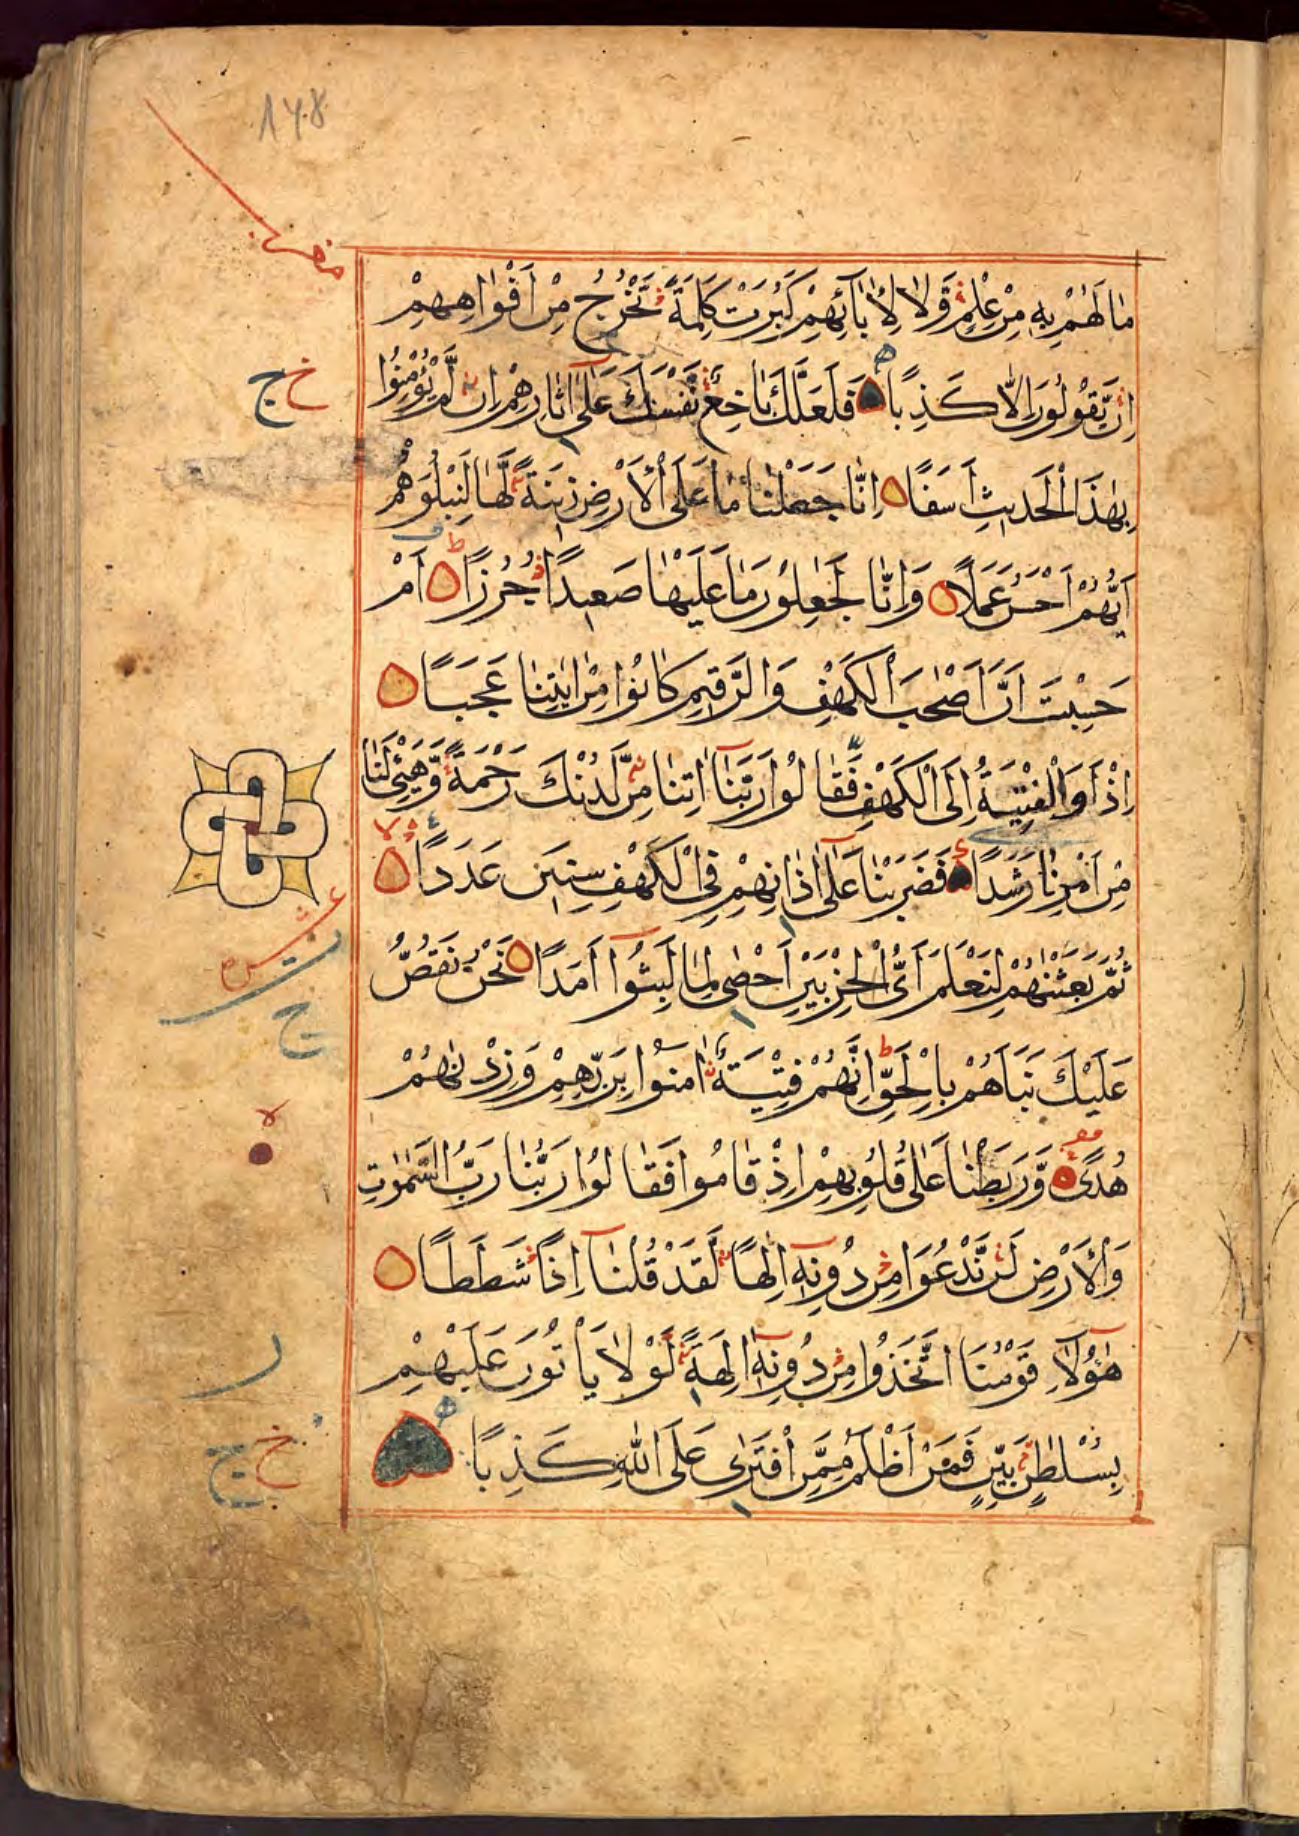 ١٧٨
مَا لَهُمْ بِهِ مِنْ عِلْمٍ وَّلَا لِاٰبَآئِهِمْ كَبُرَتْ كَلِمَةً تَخْرُجُ مِنْ اَفْوَاهِهِمْ
اِنْ يَّقُولُونَ اِلَّا كَذِبًا فَلَعَلَّكَ بَاخِعٌ نَّفْسَكَ عَلٰٓى اٰثَارِهِمْ اِنْ لَّمْ يُؤْمِنُوا
بِهٰذَا الْحَدِيثِ اَسَفًا اِنَّا جَعَلْنَا مَا عَلَى الْاَرْضِ زِينَةً لَّهَا لِنَبْلُوَهُمْ
اَيُّهُمْ اَحْسَنُ عَمَلًا وَاِنَّا لَجٰعِلُونَ مَا عَلَيْهَا صَعِيدًا جُرُزًا اَمْ
حَسِبْتَ اَنَّ اَصْحٰبَ الْكَهْفِ وَالرَّقِيمِ كَانُوا مِنْ اٰيٰتِنَا عَجَبًا
اِذْ اَوَى الْفِتْيَةُ اِلَى الْكَهْفِ فَقَالُوا رَبَّنَآ اٰتِنَا مِنْ لَّدُنْكَ رَحْمَةً وَّهَيِّئْ لَنَا
مِنْ اَمْرِنَا رَشَدًا فَضَرَبْنَا عَلٰٓى اٰذَانِهِمْ فِي الْكَهْفِ سِنِينَ عَدَدًا
ثُمَّ بَعَثْنٰهُمْ لِنَعْلَمَ اَىُّ الْحِزْبَيْنِ اَحْصٰى لِمَا لَبِثُوٓا اَمَدًا نَحْنُ نَقُصُّ
عَلَيْكَ نَبَاَهُمْ بِالْحَقِّ اِنَّهُمْ فِتْيَةٌ اٰمَنُوا بِرَبِّهِمْ وَزِدْنٰهُمْ
هُدًى وَّرَبَطْنَا عَلٰى قُلُوبِهِمْ اِذْ قَامُوا فَقَالُوا رَبُّنَا رَبُّ السَّمٰوٰتِ
وَالْاَرْضِ لَنْ نَّدْعُوَا مِنْ دُونِهِٓ اِلٰهًا لَّقَدْ قُلْنَآ اِذًا شَطَطًا
هٰٓؤُلَآءِ قَوْمُنَا اتَّخَذُوا مِنْ دُونِهِٓ اٰلِهَةً لَوْلَا يَاْتُونَ عَلَيْهِمْ
بِسُلْطٰنٍ بَيِّنٍ فَمَنْ اَظْلَمُ مِمَّنِ افْتَرٰى عَلَى اللّٰهِ كَذِبًا